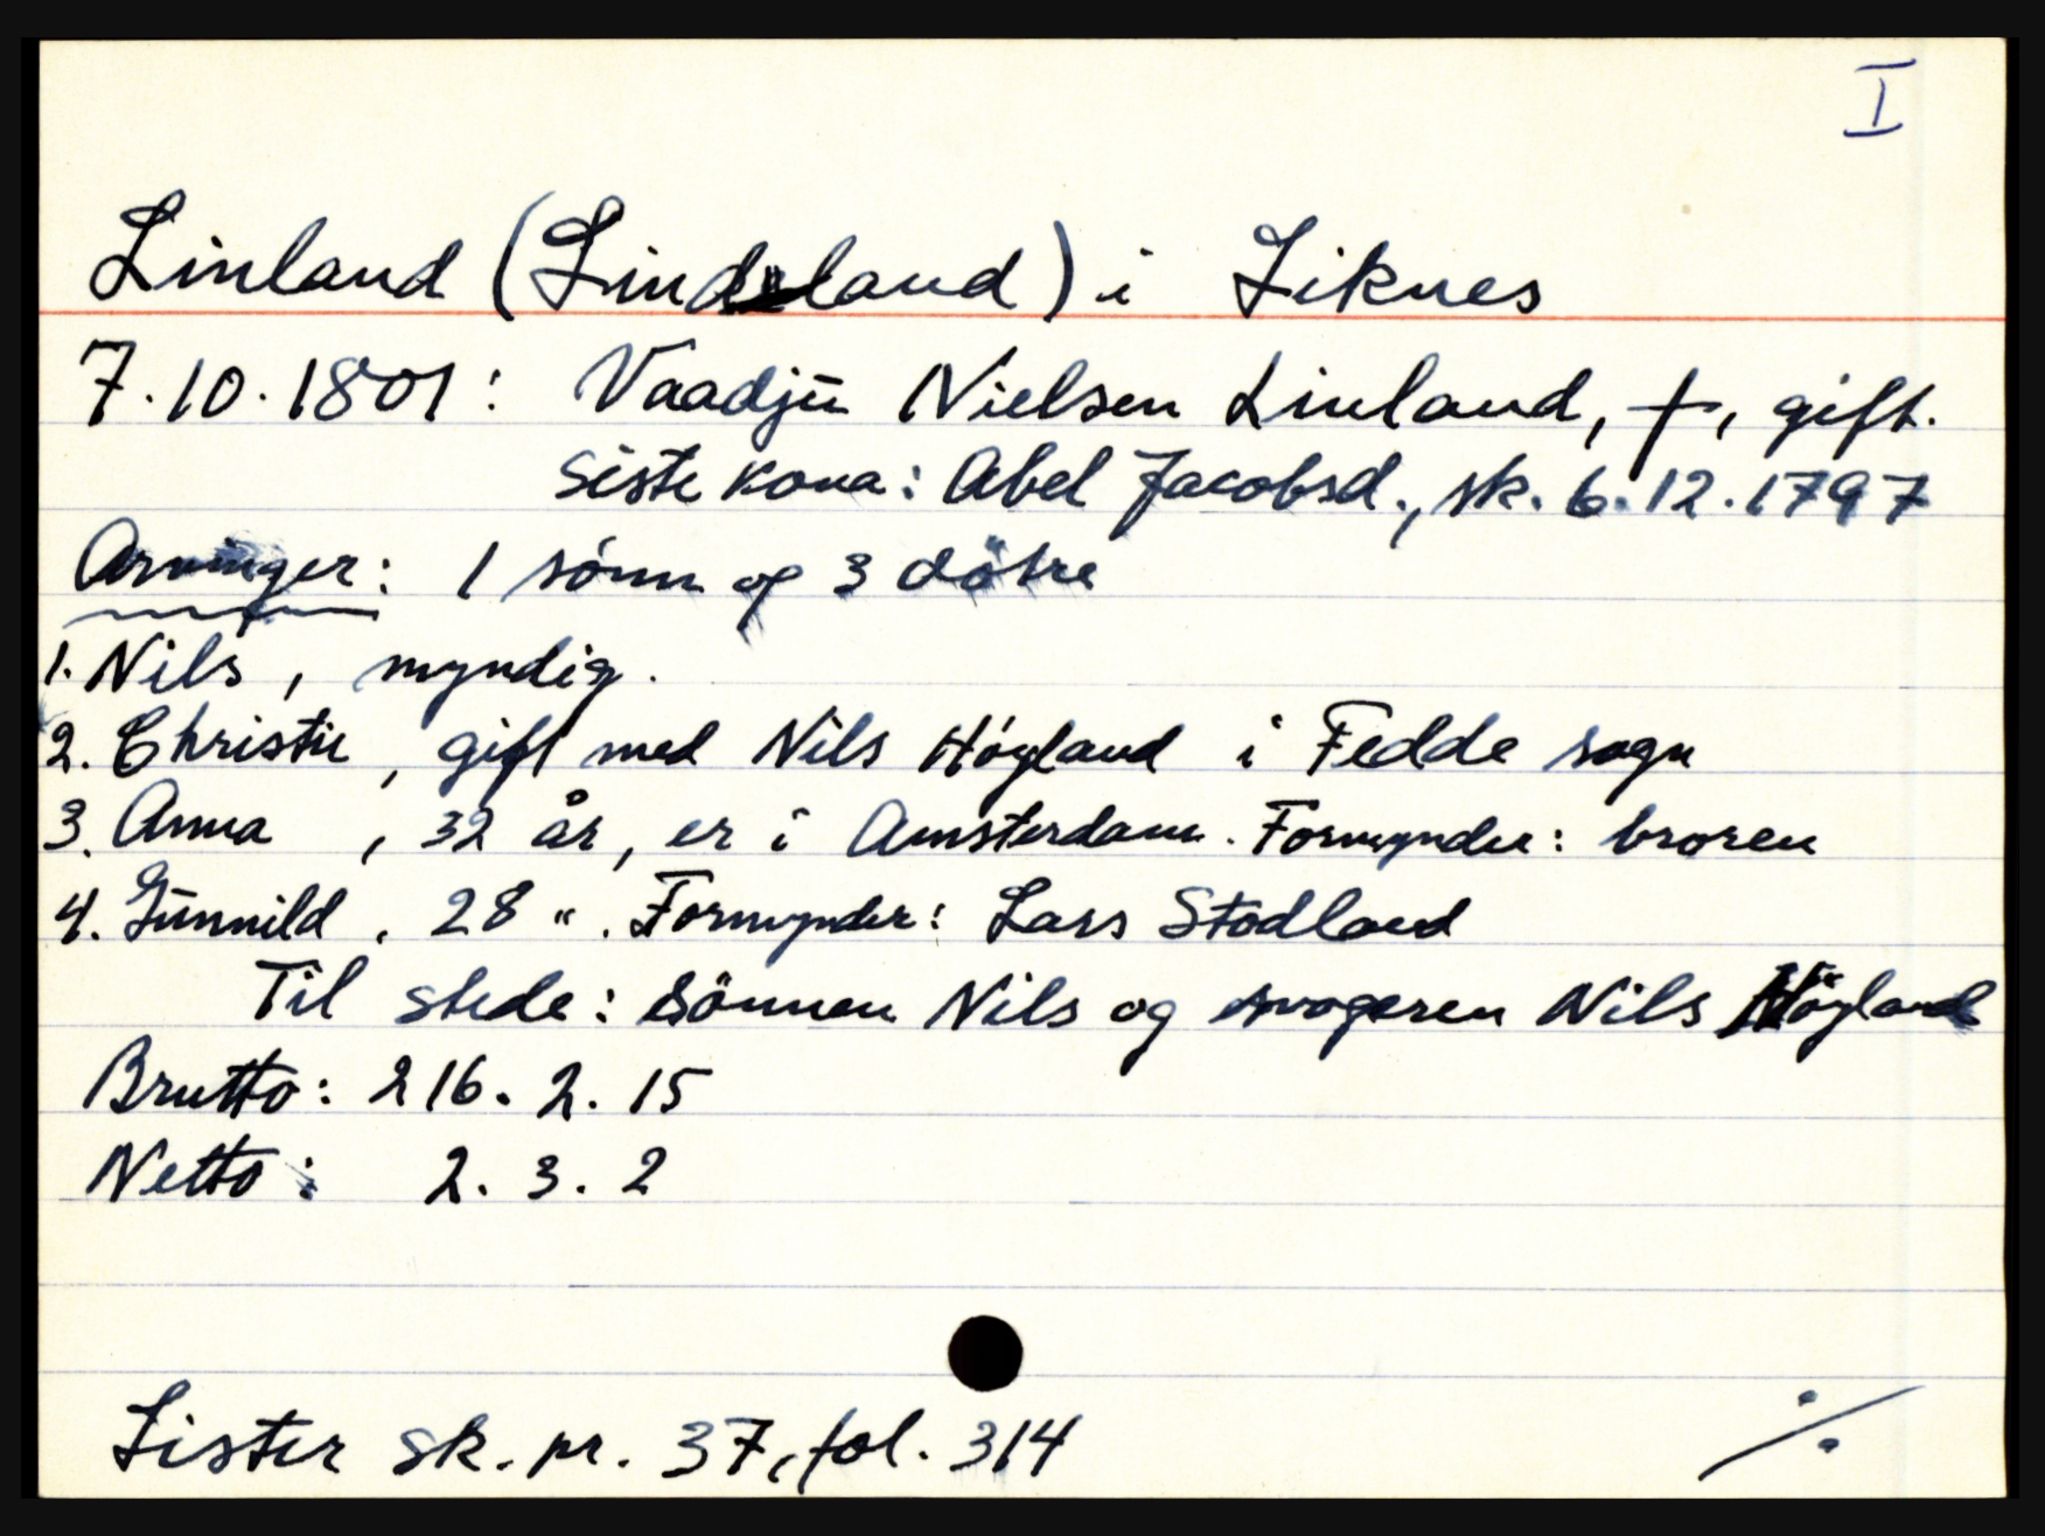 I
Linland (Lindeland) i Liknes
7.10.1801: Vaadjü Nielsen Linland, †, gift.
Siste kona: Abel Jacobsd., sk. 6.12.1797
Arvinger: 1 sónn og 3 dötre
1. Nils, myndig.
2. Christie, gift med Nils Hóyland i Fedde sogn
3. Anna, 32 år, er i Amsterdam. Formynder: broren
4. Günnild, 28 ". Formynder: Lars Stodland
Til stede: Sönnen Nils og svogeren Nils Höyland
Brutto: 216. 2. 15
Netto: 2. 3. 2
Lister sk. pr. 37, fol. 314
./.